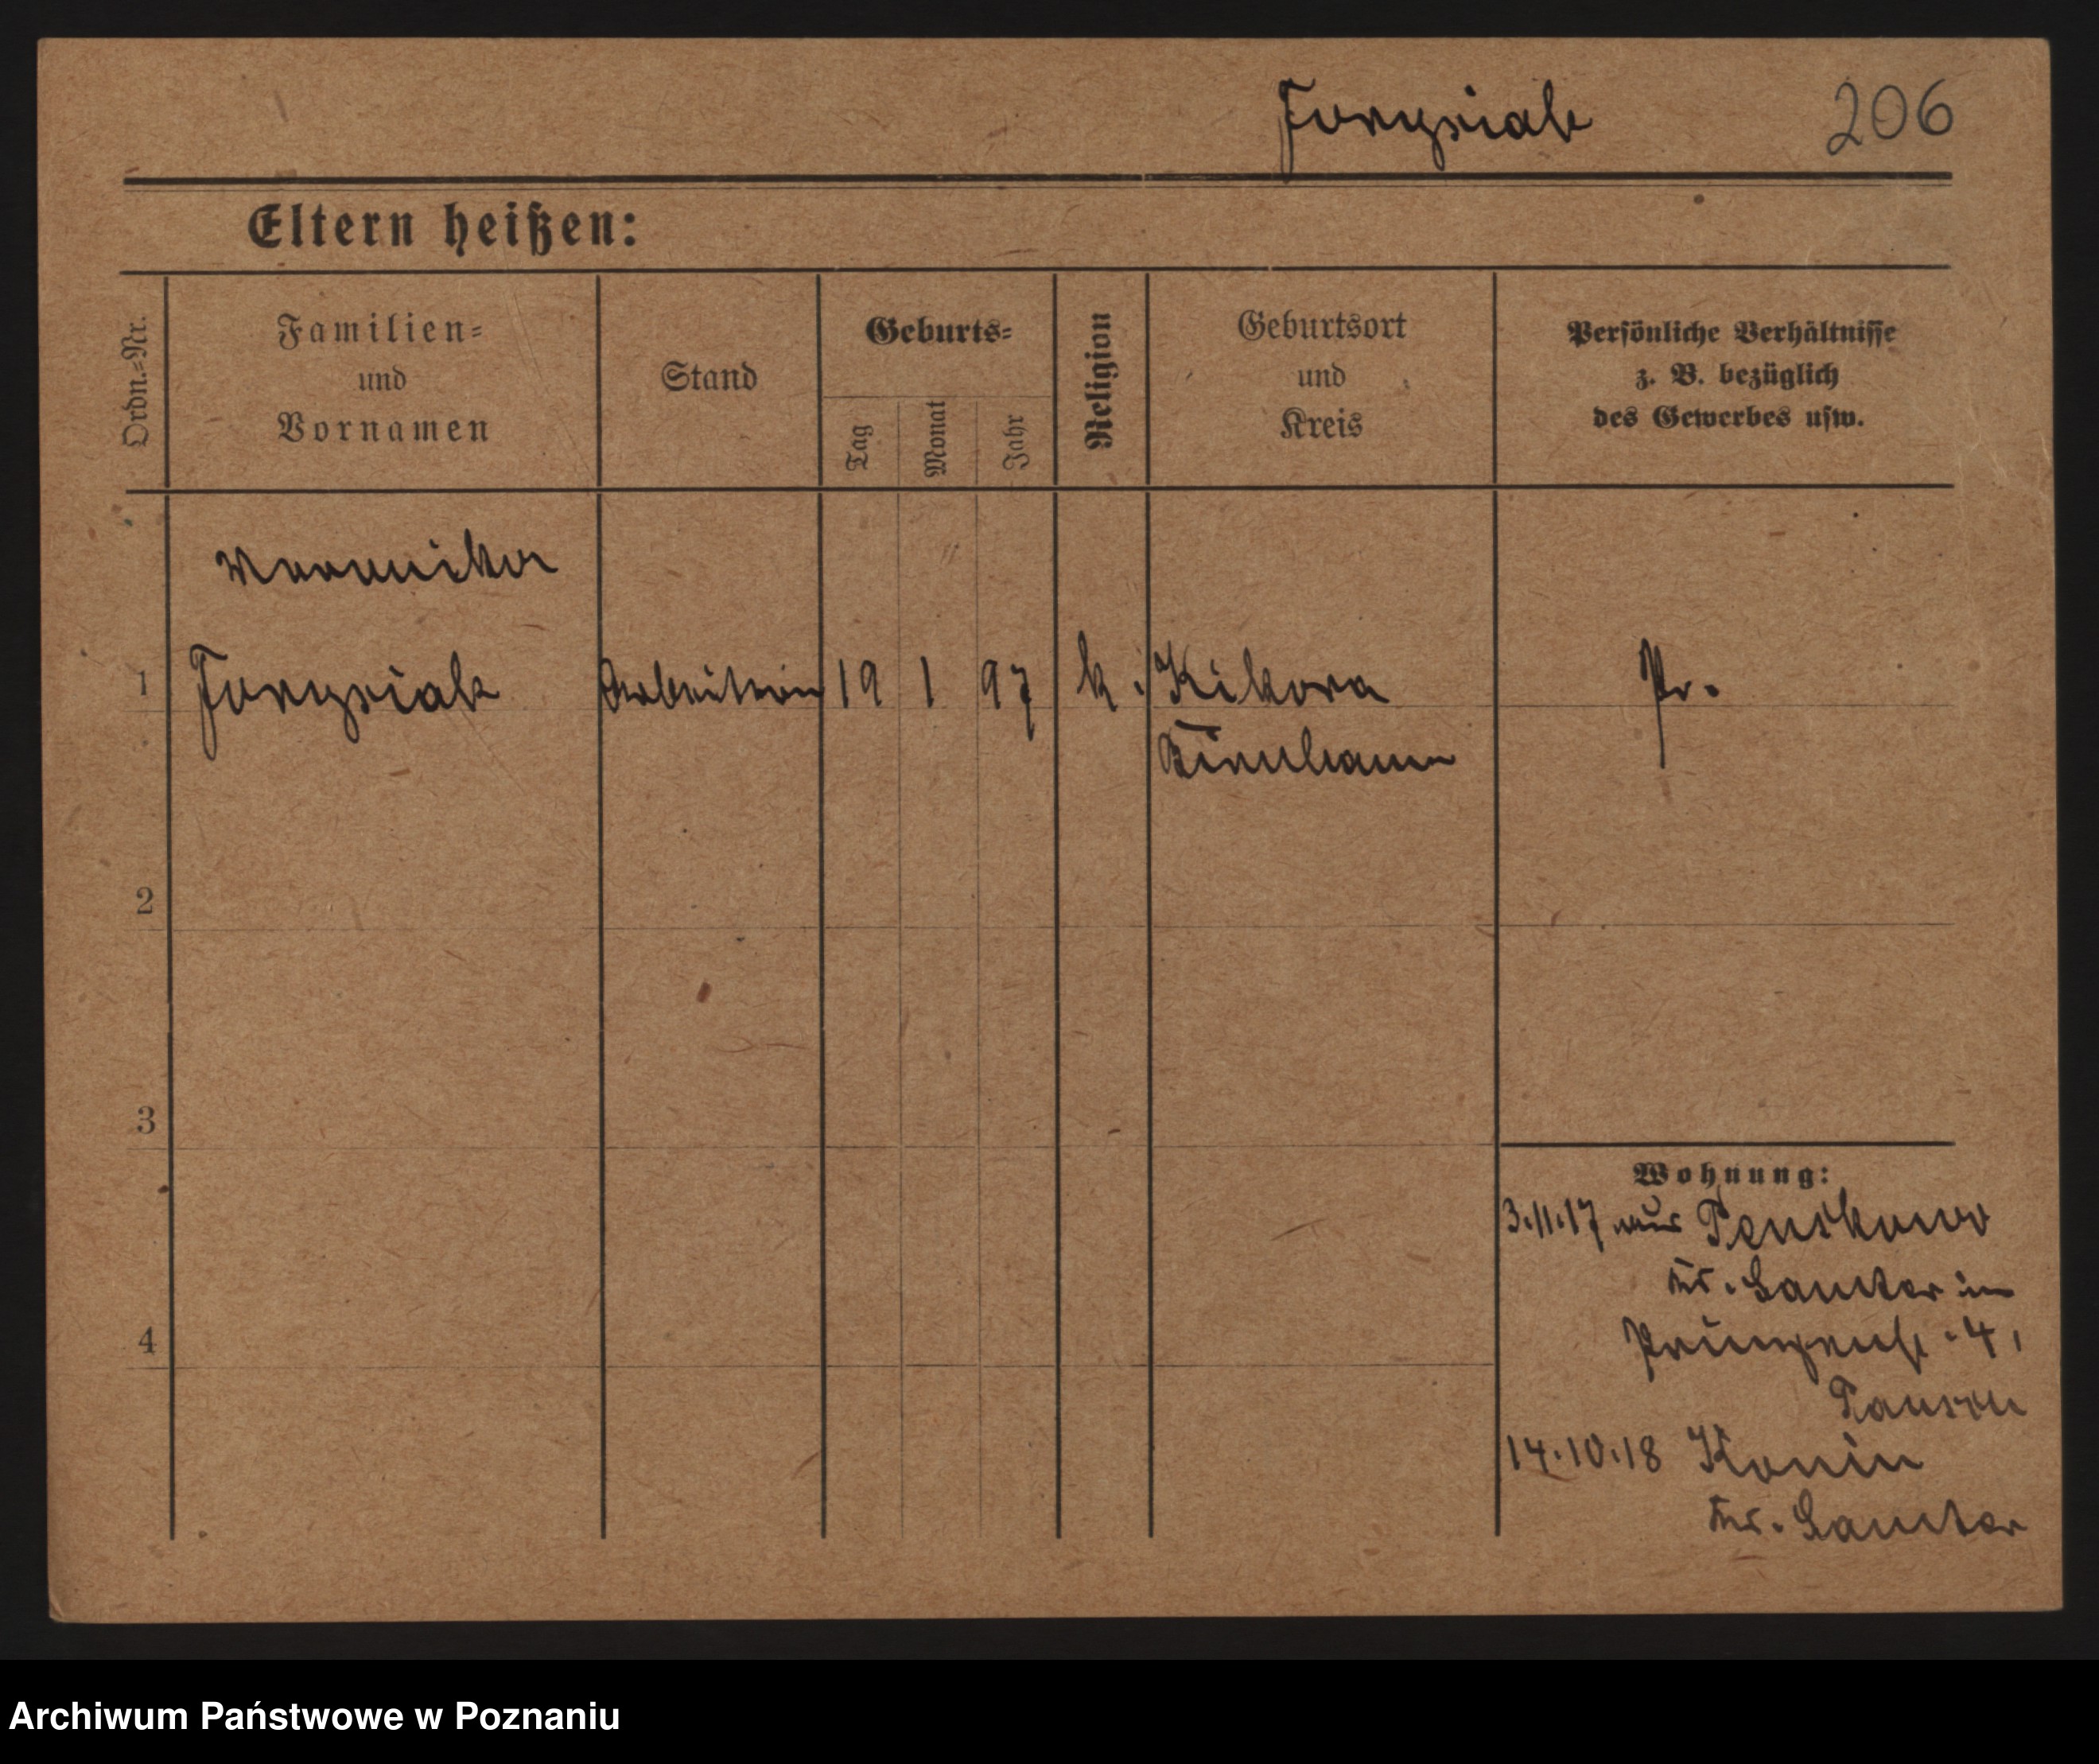 Joryziak 206
Eltern heißen:
Ordn.=Nr.
Familien=
und
Vornamen
Stand
Geburts=
Tag
Monat
Jahr
Religion
Geburtsort
und
Kreis
Persönliche Verhältnisse
z. B. bezüglich
des Gewerbes usw.
Veronika
1 Joryziak Arbeiterin 19 1 97 k. Kikowa Pr.
Birnbaum
2
3
4
Wohnung:
3.11.17 aus Penskowo
Kr. Samter in
4,
14.10.18 Konin
Kr. Samter
Archiwum Państwowe w Poznaniu